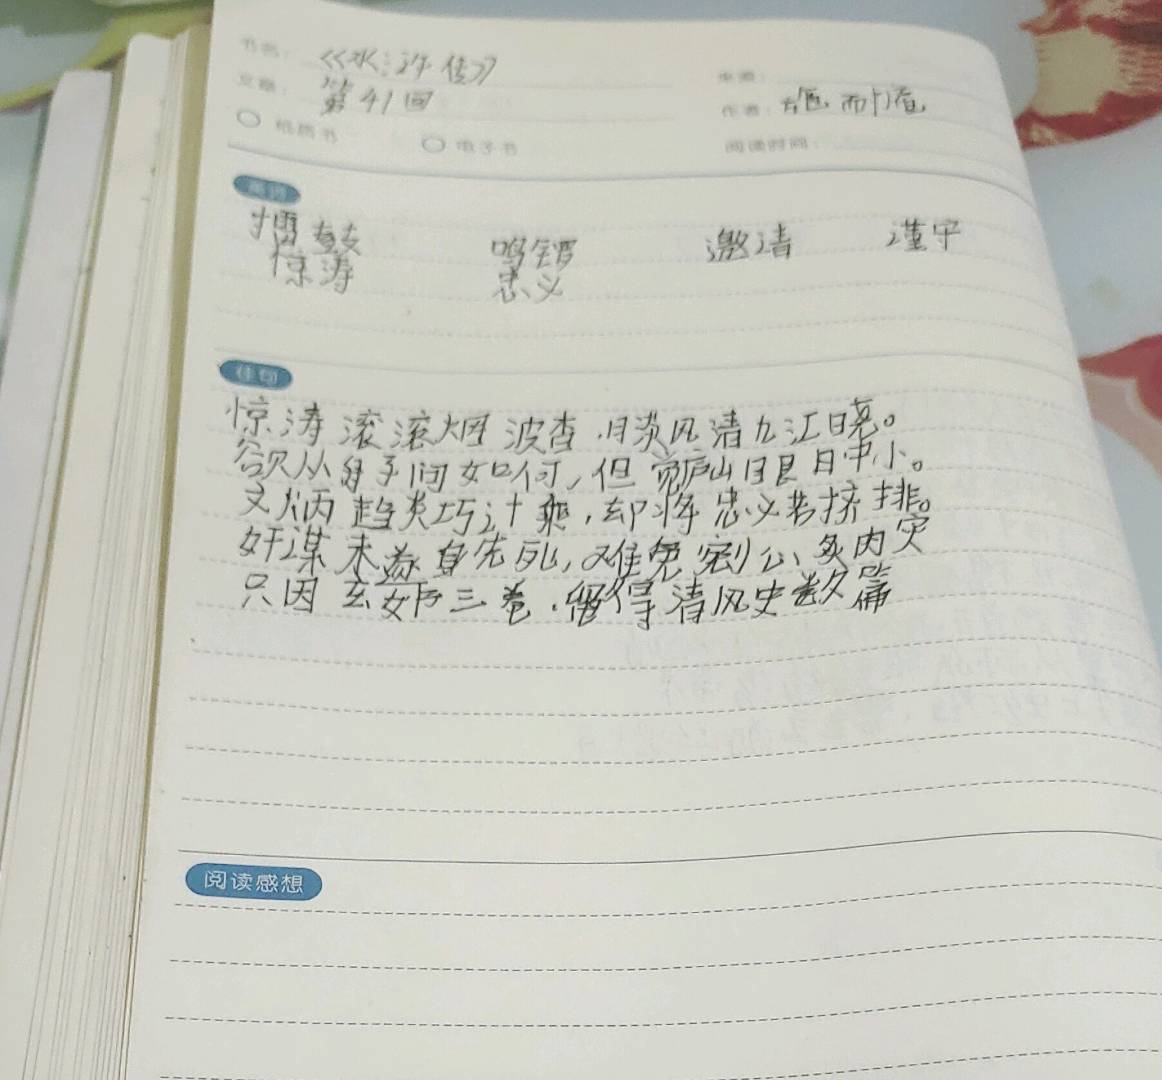 书名： 《水浒传》
来源：
文章： 第41回
作者： 施耐庵
纸质书 电子书 阅读时间：
好词
擂鼓 鸣锣 邀请 谨守
惊涛 忠义
佳句
惊涛滚滚烟波杳，月淡风清九江晓。
欲从舟子问如何，但觉庐山眼中小。
文炳趋炎巧计乘，却将忠义苦挤排。
奸谋未遂身先死，难免剜心炙肉灾
只因玄女书三卷，留得清风史数篇
阅读感想